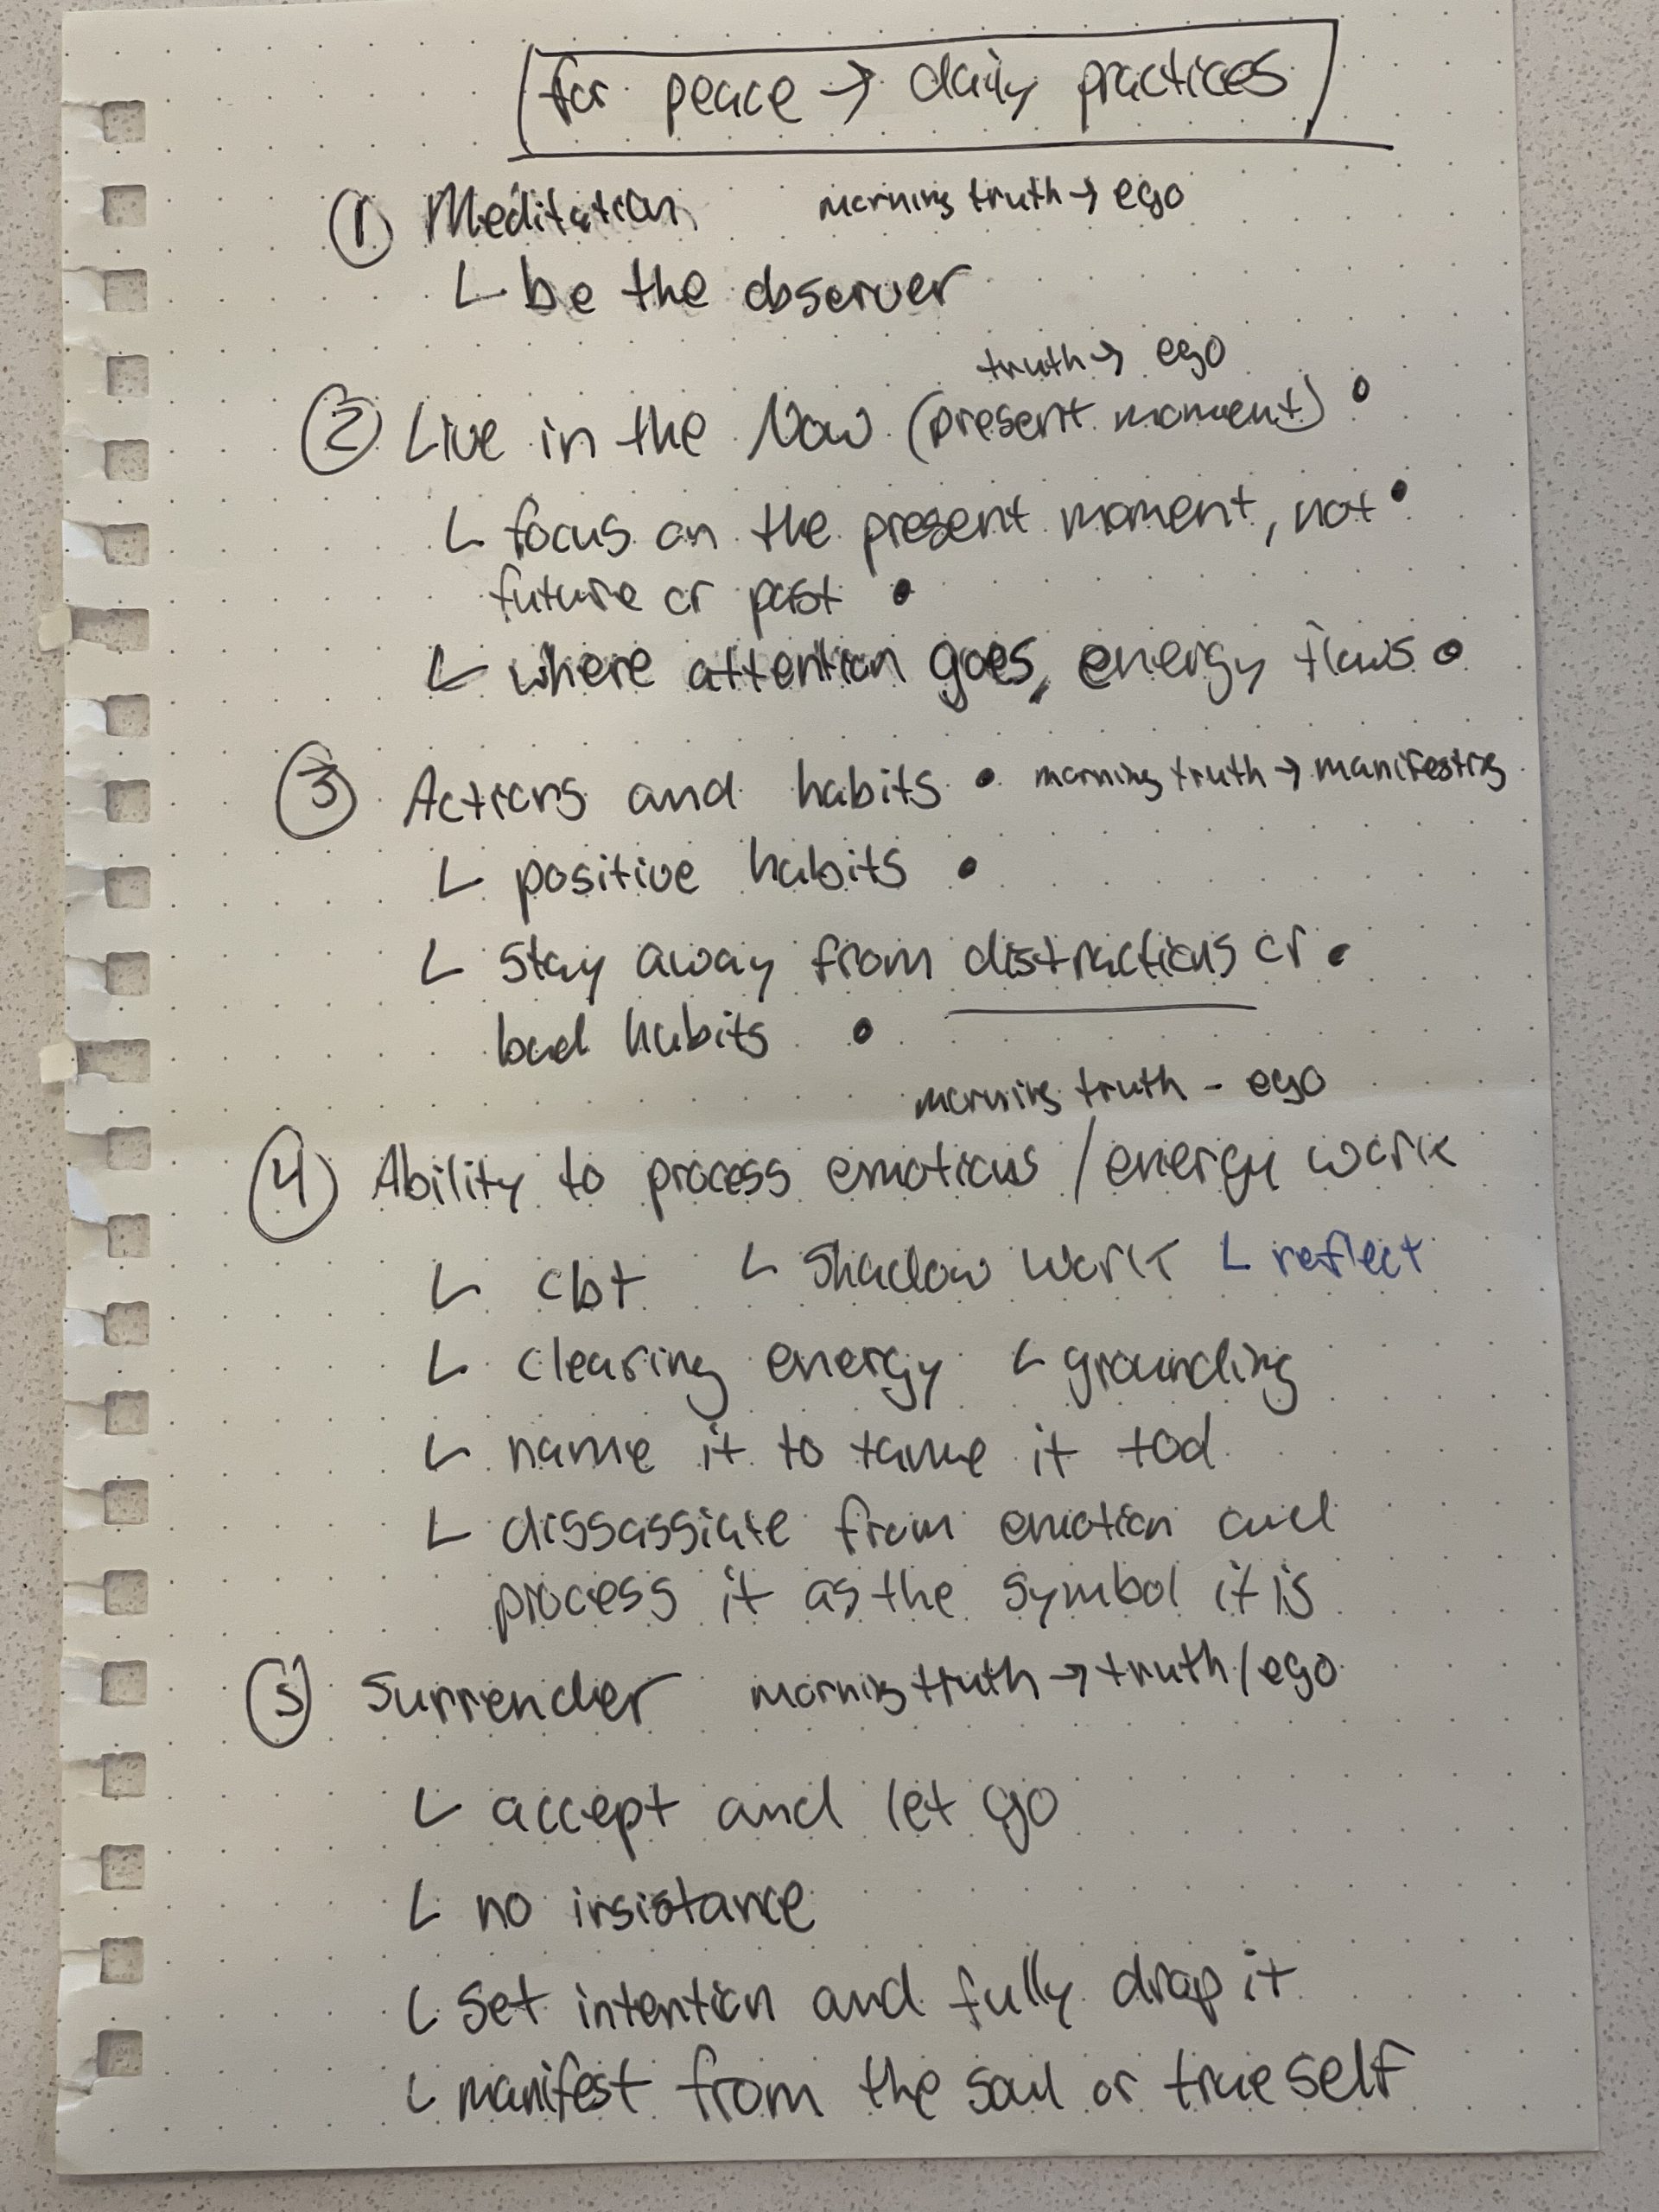 for peace → daily practices
① Meditation morning truth → ego
└ be the observer
truth → ego
② Live in the Now (present moment) •
└ focus on the present moment, not •
future or past •
└ where attention goes, energy flows •
③ Actions and habits • morning truth → manifesting
└ positive habits •
└ stay away from distractions or •
bad habits •
morning truth - ego
④ Ability to process emotions / energy work
└ cbt └ Shadow work └ reflect
└ clearing energy └ grounding
└ name it to tame it
└ dissassiate from emotion and
process it as the symbol it is
⑤ Surrender morning truth → truth/ego
└ accept and let go
└ no insistance
└ Set intention and fully drop it
└ manifest from the soul or true self